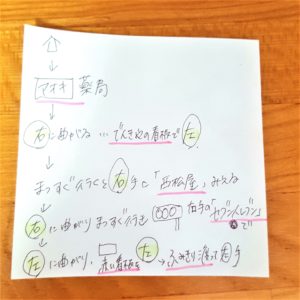 アオキ 薬局
右に曲がる … でんきやの看板で 左
まっすぐ行くと 右手に「呂松屋」みえる
右に曲がり まっすぐ行き 右手の「セブンイレブン」で
左に曲がり、赤い看板を 左 → ふみきり渡って 右手